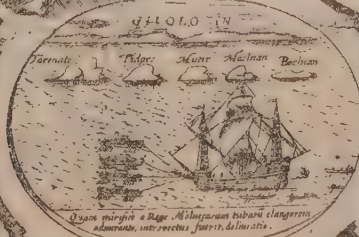 GILOLO IN
Tarenati Tidore Mutir Machian Bachian
Quam mirifice a Rege Moluccarum tubarū clangorem
admirante, introvectus fuerit, delineatio.